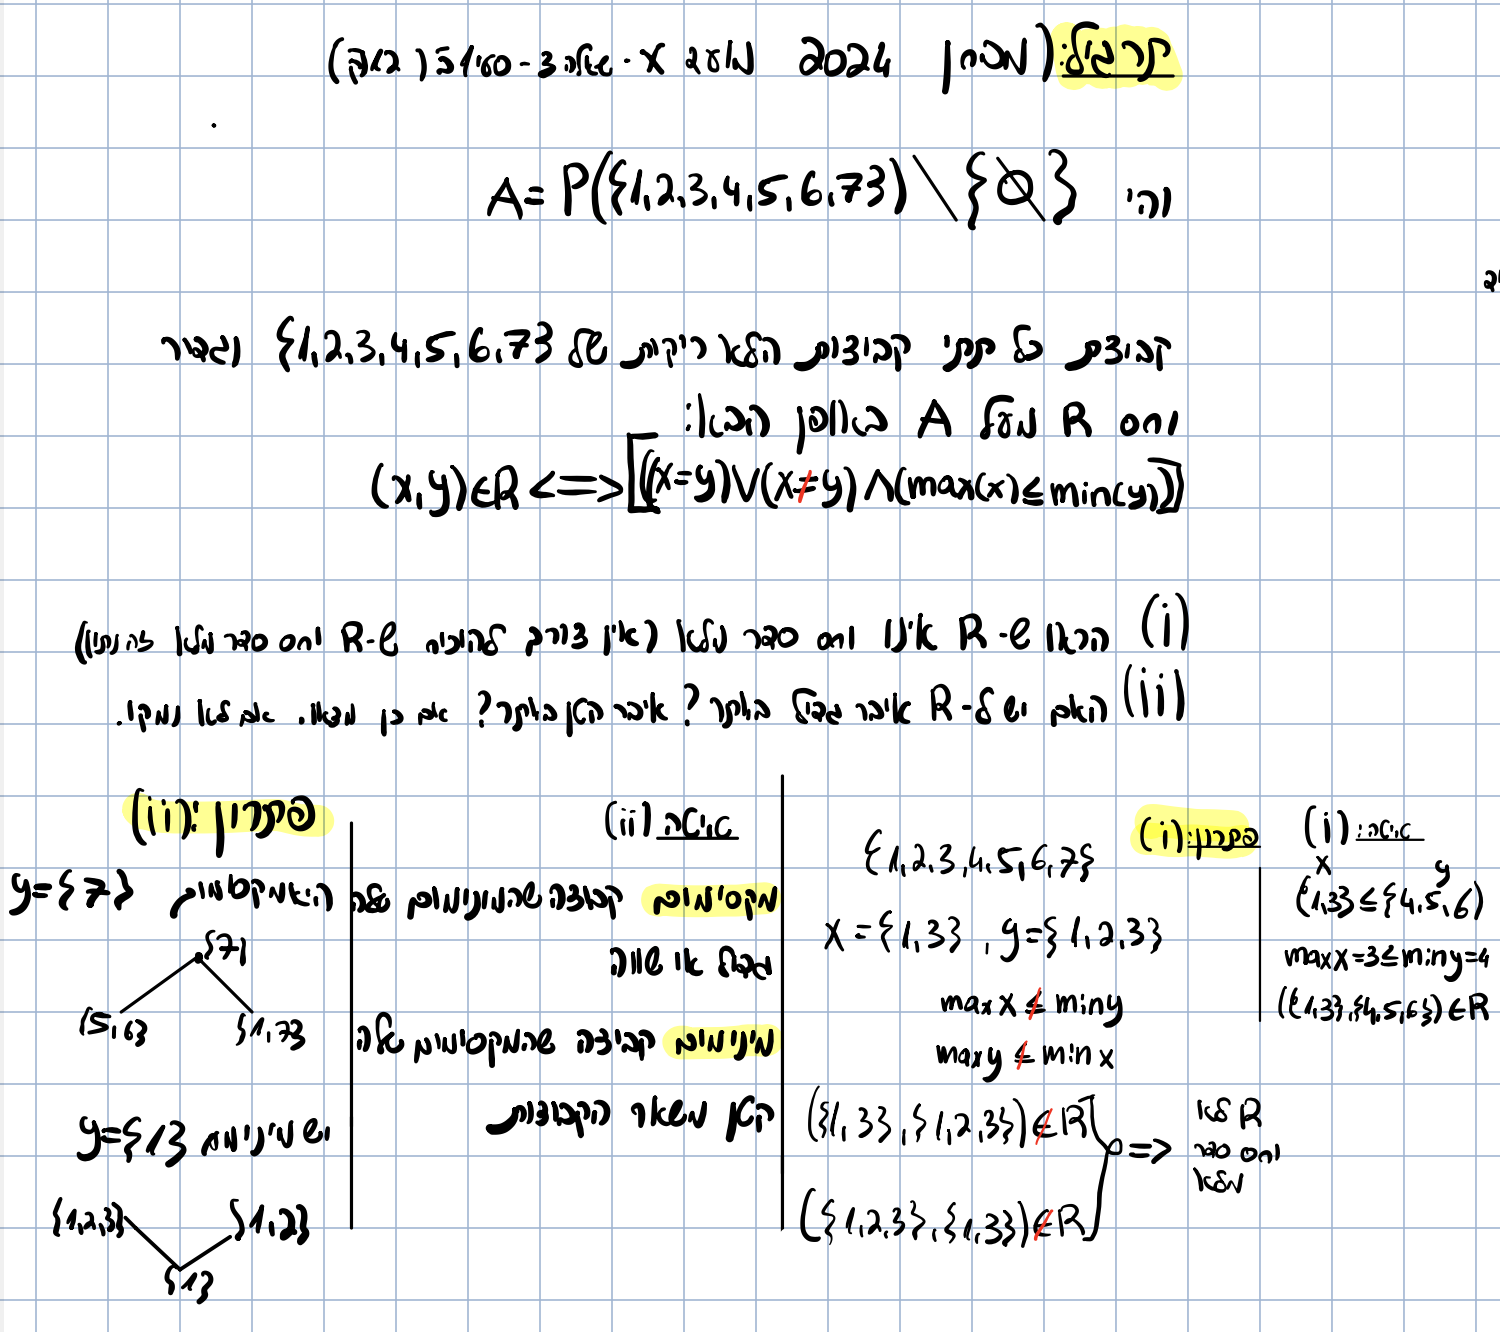 תרגיל: (מבחן 2024 מועד א - שאלה 3 - סעיף ב)
יהי A = P({1,2,3,4,5,6,7}) \ {∅}
קבוצת כל תתי קבוצות הלא ריקות של {1,2,3,4,5,6,7} נגדיר
יחס R מעל A באופן הבא:
(x,y)∈R <=> [((x=y)∨(x≠y)∧(max(x)≤min(y)))]
(i) הראו ש-R אינו יחס סדר מלא (אין צורך להוכיח ש-R יחס סדר מלא זה נתון)
(ii) האם יש ל-R איבר גדול ביותר? איבר קטן ביותר? אם כן מצאו. אם לא נמקו.
טיוטה: (i)
x y
{1,3} ≤ {4,5,6}
max x=3 ≤ min y=4
({1,3},{4,5,6}) ∈ R
פתרון: (i)
{1,2,3,4,5,6,7}
x={1,3} , y={1,2,3}
max x ≰ min y
max y ≰ min x
({1,3},{1,2,3}) ∉ R
({1,2,3},{1,3}) ∉ R
=> R לא
יחס סדר
מלא
טיוטה (ii)
מקסימום קבוצה שהמינימום שלה
גדול או שווה
מינימום קבוצה שהמקסימום שלה
קטן משאר הקבוצות
פתרון: (ii)
המקסימום y={7}
{7}
{5,6} {1,7}
יש מינימום y={1}
{1,2,3} {1,2}
{1}